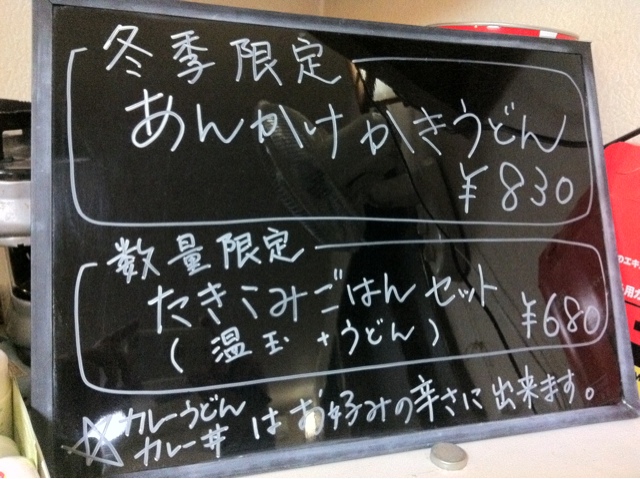 冬季限定
あんかけかきうどん
¥830
数量限定
たきこみごはんセット
(温玉+うどん) ¥680
☆カレーうどん
カレー丼 はお好みの辛さに出来ます。